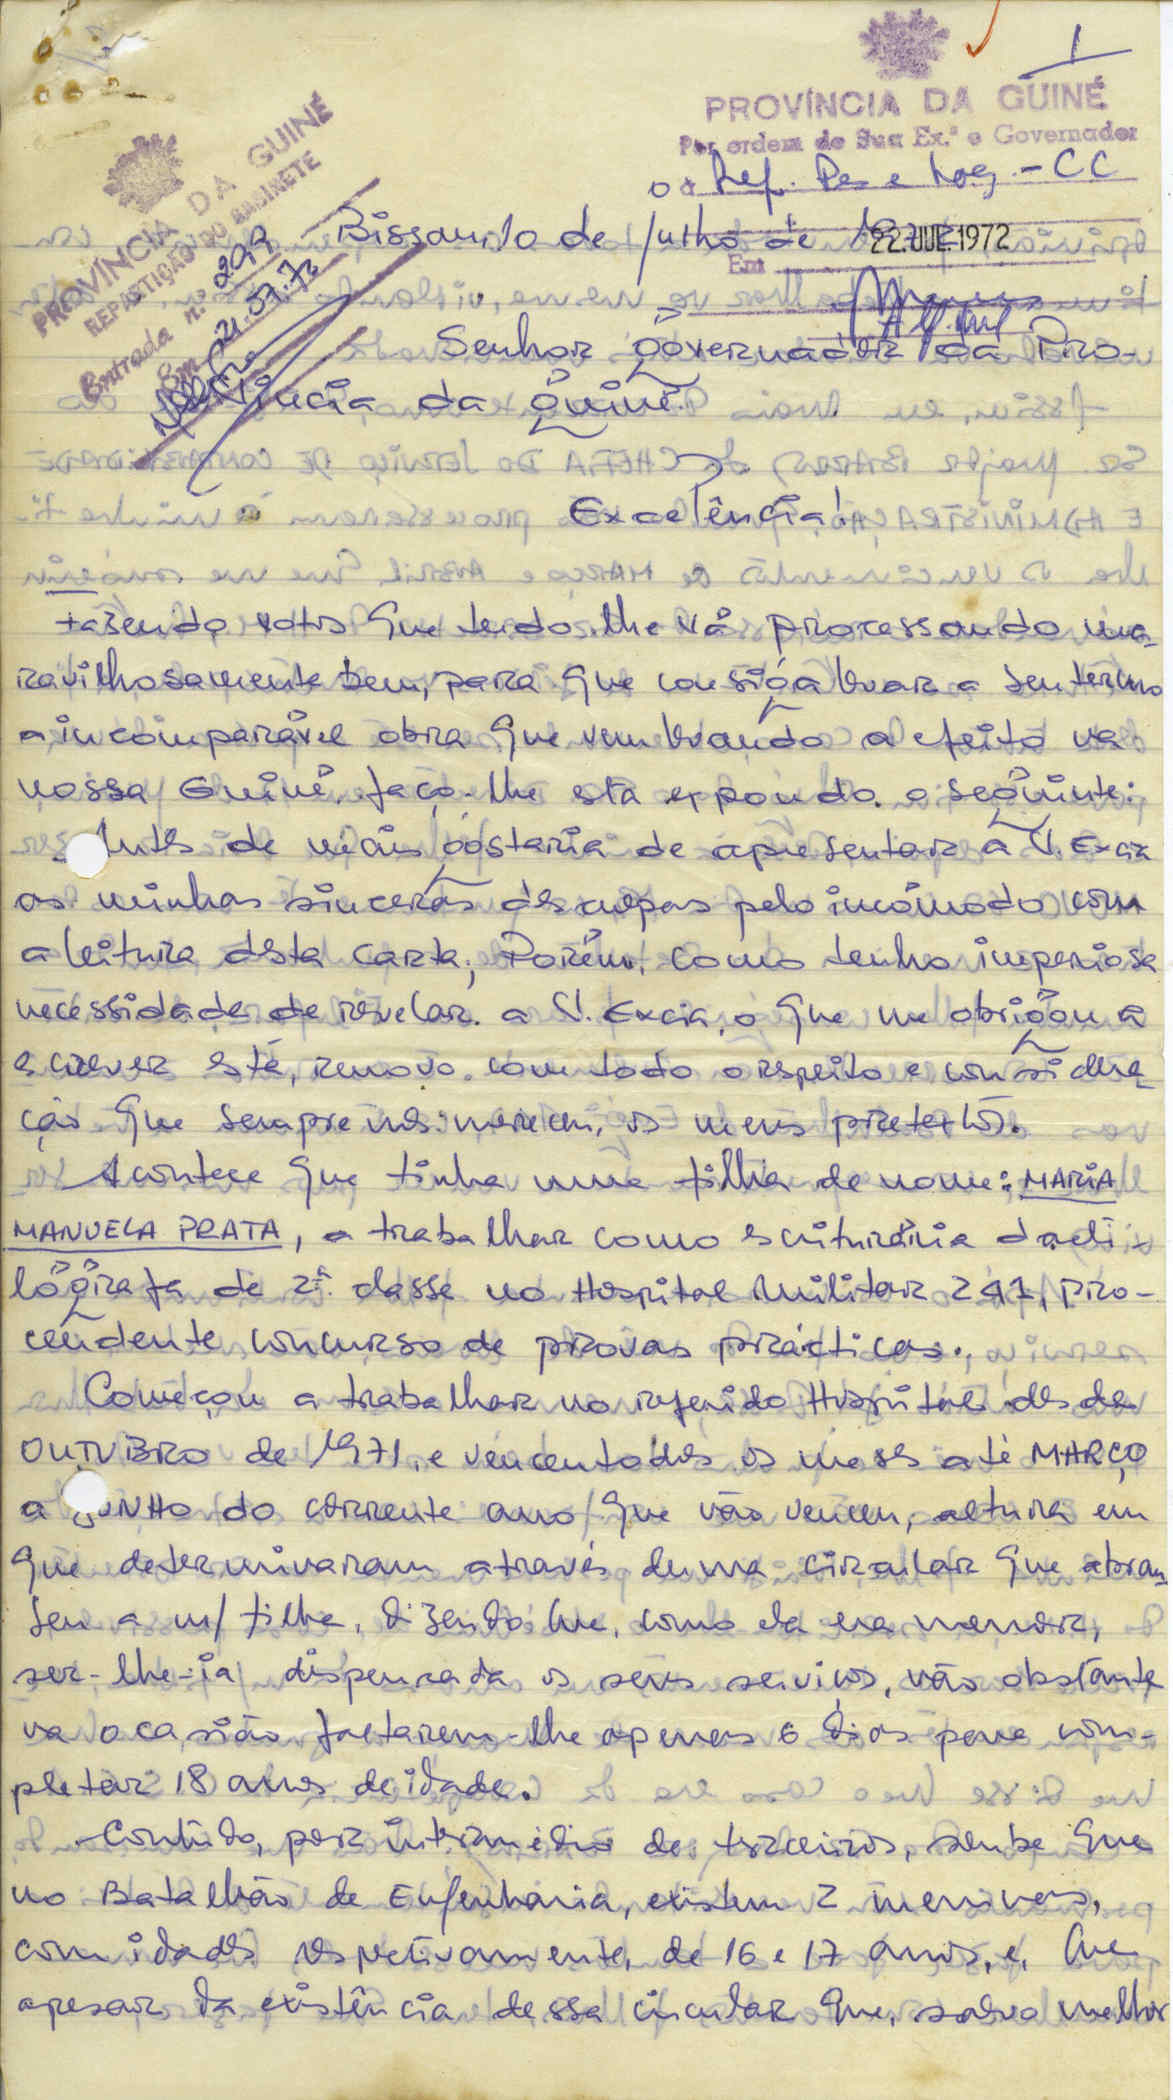 1
PROVÍNCIA DA GUINÉ
Por ordem de Sua Ex.ª o Governador
Rep. - CC
Em 22. JUL. 1972
PROVÍNCIA DA GUINÉ
REPARTIÇÃO DO GABINETE
Entrada n.º 299
Em 21.07.72
Bissau, de Julho de
Senhor Governador da Pro-
víncia da Guiné.
Excelência!
Fazendo votos que tudo lhe vá processando ma-
ravilhosamente bem, para que consiga levar a seu término
a incomparável obra que vem levando a efeito na
nossa Guiné, faço-lhe esta expondo o seguinte:
Antes de mais gostaria de apresentar a V. Excia
as minhas sinceras desculpas pelo incómodo com
a leitura desta carta; Porém, como tenho imperiosa
necessidade de revelar a V. Excia, o que me obrigou a
escrever esta, renovo com todo o respeito e conside-
ção que sempre nos merecem, os meus pretextos.
Acontece que tinha uma filha de nome: MARIA
MANUELA PRATA, a trabalhar como escriturária dacti-
lógrafa de 2ª. classe no Hospital Militar 241, pro-
cendente concurso de provas prácticas.
Começou a trabalhar no referido Hospital desde
OUTUBRO de 1971, e venceu todos os meses até MARÇO
a JUNHO do corrente ano/que não venceu, altura em
que determinaram através duma circular que abran-
geu a m/ filha, dizendo que, como ela era menor,
ser-lhe-ia dispensada os seus serviços, não obstante
na ocasião faltarem-lhe apenas 6 dias para com-
pletar 18 anos de idade.
Contudo, por intermédio de terceiros, soube que
no Batalhão de Engenharia, existem 2 meninas,
com idades respectivamente, de 16 e 17 anos, e, que
apesar da existência dessa circular que, salvo melhor